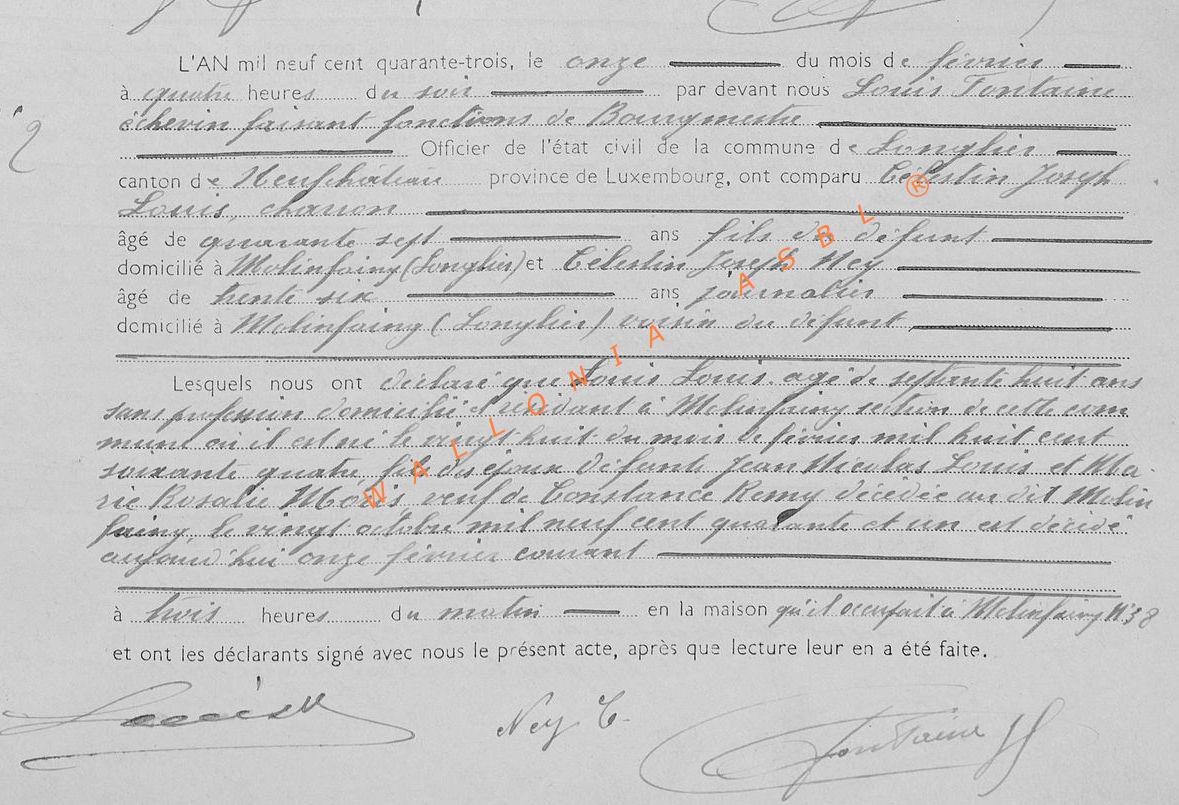 2
L'AN mil neuf cent quarante-trois, le onze du mois de février
à quatre heures du soir par devant nous Louis Fontaine
échevin faisant fonctions de Bourgmestre
Officier de l'état civil de la commune de Longlier
canton de Neufchâteau province de Luxembourg, ont comparu Célestin Joseph
Louis, charron
âgé de quarante sept ans fils du défunt
domicilié à Molinfaing (Longlier) et Célestin Joseph Ney
âgé de trente six ans journalier
domicilié à Molinfaing (Longlier) voisin du défunt
Lesquels nous ont déclaré que Louis Louis agé de septante huit ans
sans profession domicilié et résidant à Molinfaing section de cette com
mune où il est né le vingt-huit du mois de février mil huit cent
soixante quatre, fils des époux défunts Jean Nicolas Louis et Ma-
rie Rosalie veuf de Constance Remy décédée au dit Molin
faing, le vingt octobre mil neuf cent quarante et un est décédé
aujourd'hui onze février courant
à trois heures du matin en la maison qu'il occupait à Molinfaing N°38
et ont les déclarants signé avec nous le présent acte, après que lecture leur en a été faite.
Ney C. Fontaine
WALLONIA ASBL ®